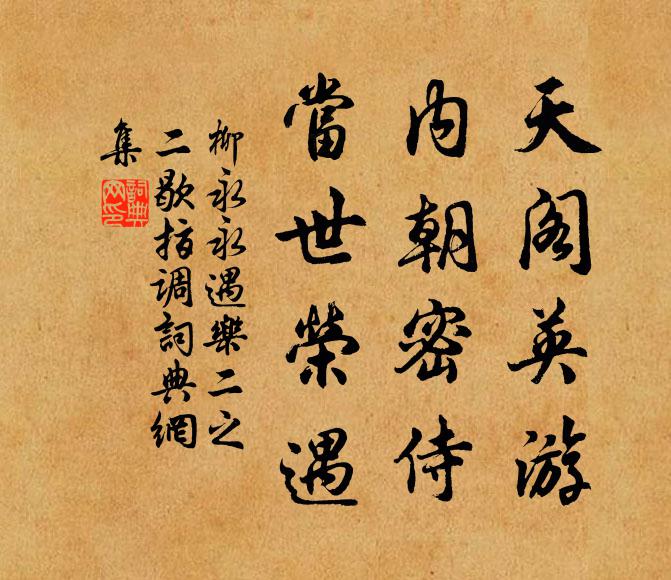 天阁英游
内朝密侍
當世荣遇
柳永永遇樂二之
二歇指调詞典網
集
詞典网印